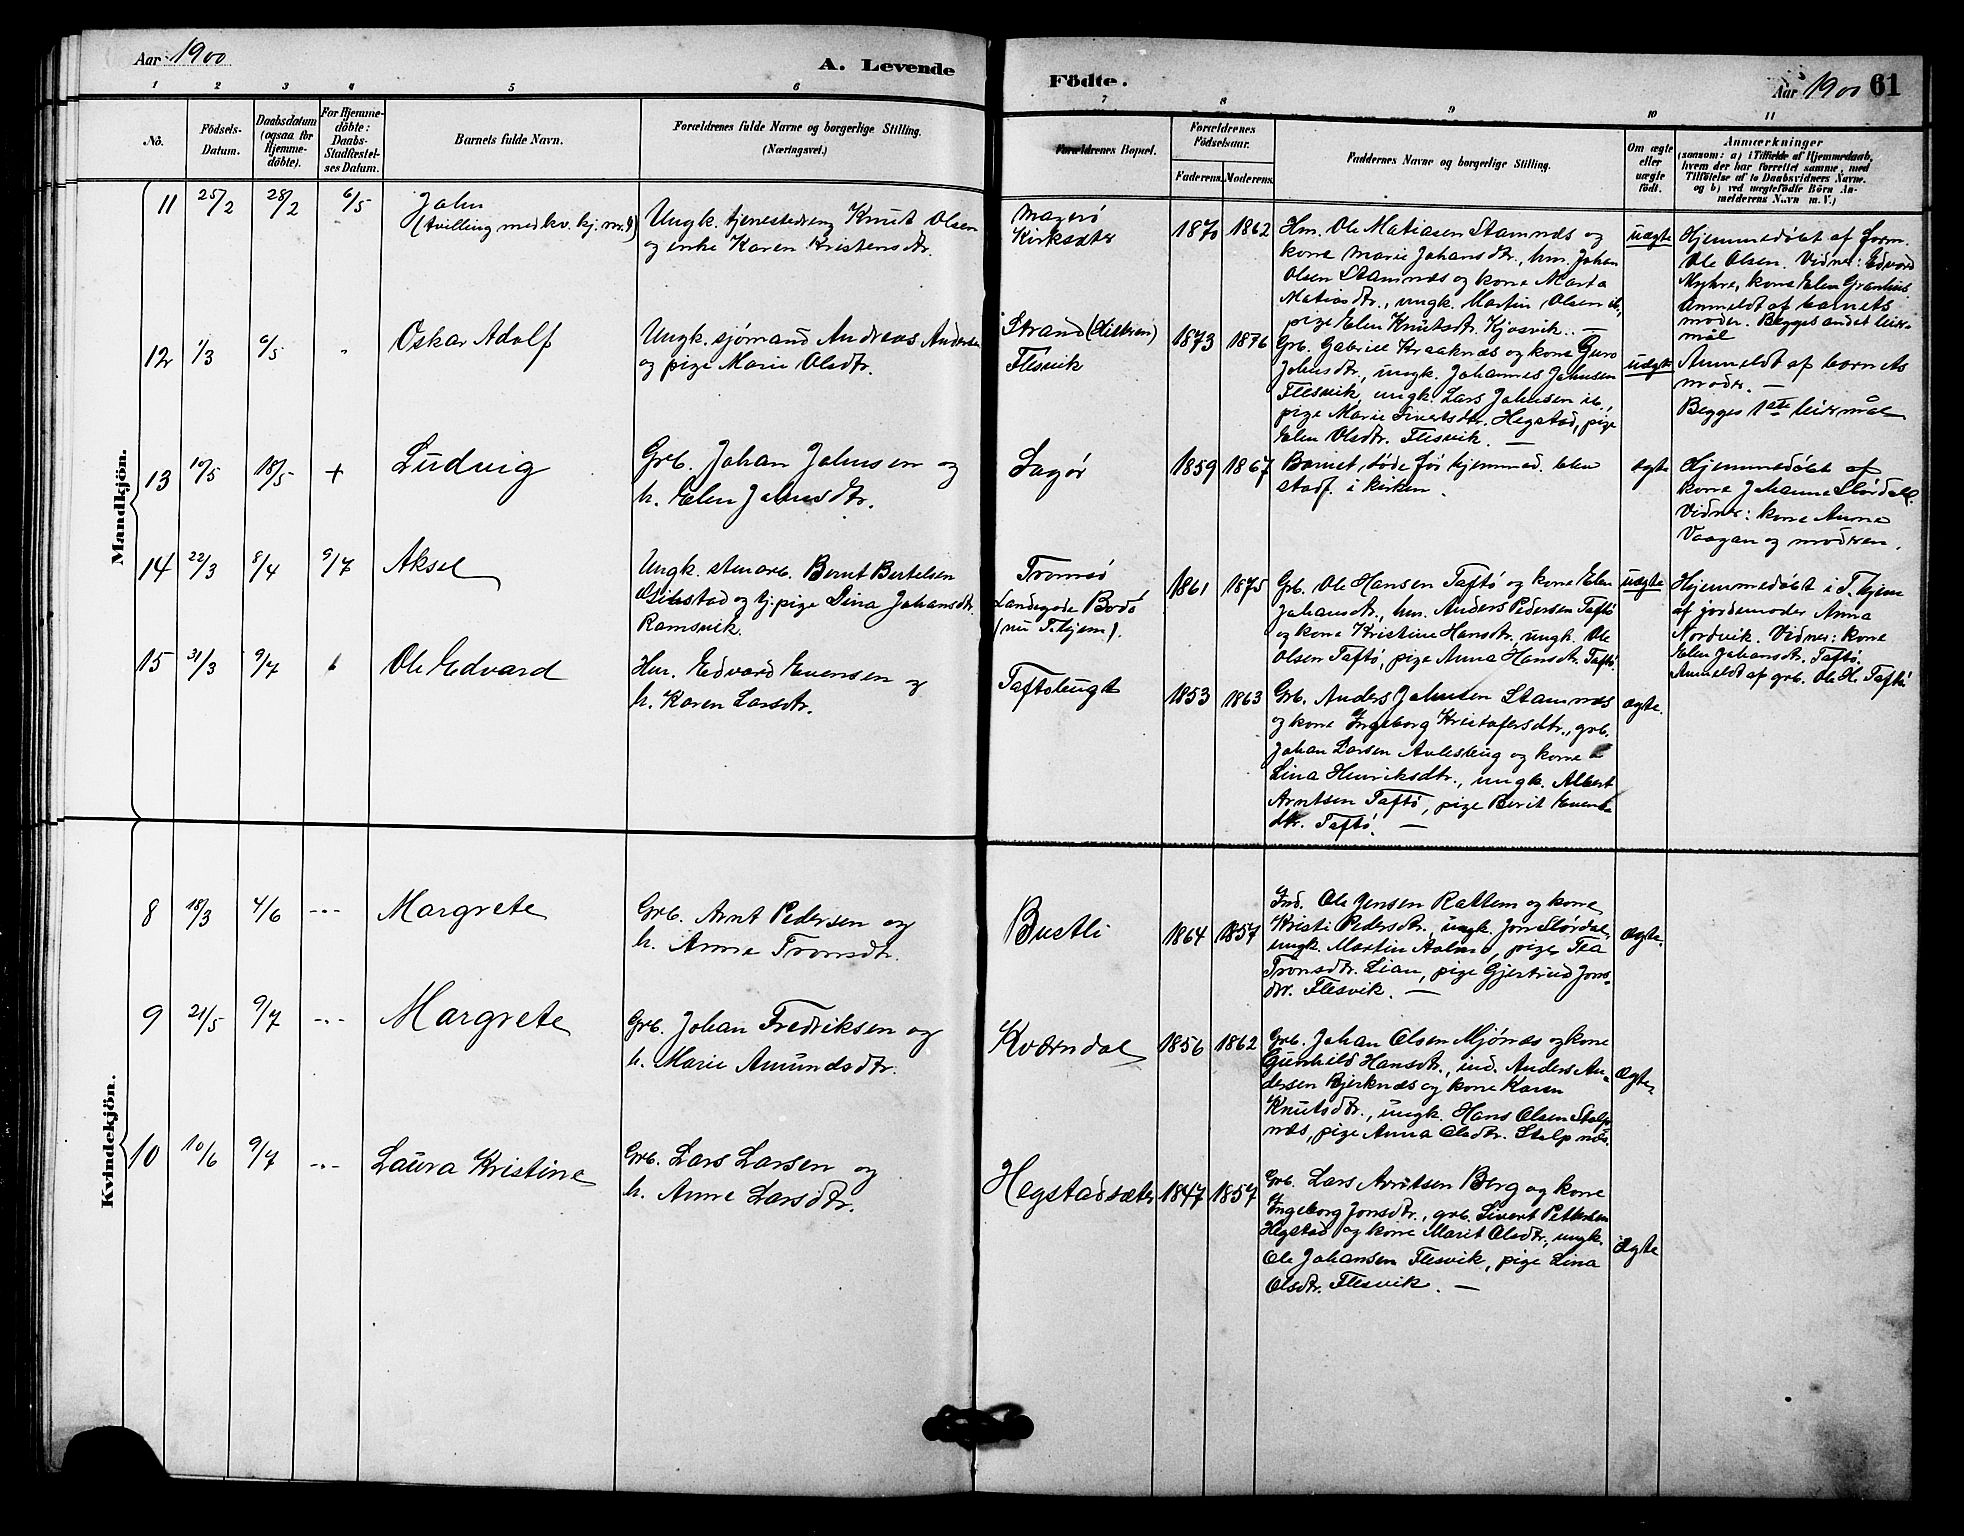 Aar 1900
A. Levende
Födte.
Aar 1900 61
1 2 3 4 5 6 7 8 9 10 11
No.
Födsels-
Datum.
Daabsdatum
(ogsaa for
Hjemme-
döbte).
For Hjemme-
döbte:
Daabs-
Stadfæstel-
ses Datum.
Barnets fulde Navn.
Forældrenes fulde Navne og borgerlige Stilling.
(Næringsvei.)
Forældrenes Bopæl.
Forældrenes
Födselsaar.
Faderens. Moderens.
Faddernes Navne og borgerlige Stilling.
Om ægte
eller
uægte
födt.
Anmærkninger
(saasom: a) i Tilfælde af Hjemmedaab,
hvem der har forrettet samme, med
Tilföielse af to Daabsvidners Navne,
og b) ved uægtefödte Börn An-
melderens Navn m. V.)
Mandkjön.
11 25/2 28/2 6/5
John
(tvilling med kv. kj. nr. 9)
Ungk. tjenestedreng Knut Olsen
og enke Karen Kristensdtr.
Magerö
Kirksæter
1870 1862
Hm. Ole Matiasen Stamnæs og
kone Marie Johansdtr., hm. Johan
Olsen Stamnæs og kone Marta
Matiasdtr., ungk. Martin Olsen ib.,
pige Elen Knutsdtr. Kjosvik. —
uægte
Hjemmedöbt af form.
Ole Olsen. Vidner: Edvard
Myhre, kone Elen Grantius
Anmeldt af barnets
moder. Begges andet leier-
mål
12 1/3 6/5 "
Oskar Adolf
Ungk. sjømand Andreas Anders.
og pige Marie Olsdtr.
Strand (Hitteren)
Flesvik
1873 1876
Grb. Gabriel Kraaknæs og kone Guro
Johnsdtr., ungk. Johannes Johnsen
Flesvik, ungk. Lars Johnsen ib.,
pige Marie Sivertsdtr. Hegstad, pige
Elen Olsdtr. Flesvik. —
uægte
Anmeldt af barnets
moder. —
Begges 1ste leiermål
13 10/5 18/5 +
Ludvig
Grb. Johan Johnsen og
h. Elen Johnsdtr.
Sagør
1859 1867
Barnet døde før hjemmed. blev
stadf. i kirken.
ægte
Hjemmedöbt af
kone Johanna Størdal.
Vidner: kone Anna
Vaagan og moderen.
14 22/3 8/4 9/7
Aksel
Ungk. stenarb. Bernt Bertelsen
Gibstad og tj. pige Dina Johansdtr.
Ramsvik.
Tromsö
Landegode Bodö
(nu T.hjem).
1861 1875
Grb. Ole Hansen Taftö og kone Elen
Johansdtr., hm. Anders Pedersen Taftö
og kone Kristine Hansdtr. ungk. Ole
Olsen Taftö, pige Anna Hansdtr. Taftö.
uægte
Hjemmedöbt i T.hjem
af jordemoder Anna
Nordvik. Vidner: kone
Elen Johansdtr. Taftö.
Anmeldt af grb. Ole H. Taftö
15 31/3 9/7
Ole Edvard
Hm. Edvard Evensen og
h. Karen Larsdtr.
Taftöbugt
1853 1863
Grb. Anders Johnsen Stamnæs
og kone Ingeborg Kristofersdtr., grb.
Johan Larsen Avlesbug og kone
Lina Henriksdtr., ungk. Albert
Arntsen Taftö, pige Berit Evens-
dtr. Taftö. —
ægte.
Kvindekjön.
8 18/3 4/6 ---
Margrete
Grb. Arnt Pedersen og
h. Anne Tronsdtr.
Bustli
1864 1857
Ind. Ole Jensen Rattem og kone
Kristi Pedersdtr., ungk. Jon Størdal,
ungk. Martin Aalmo, pige Tea
Tronsdtr. Lian, pige Gjertrud Jons-
dtr. Flesvik. —
ægte.
9 21/5 9/7 ---
Margrete
Grb. Johan Fredriksen og
h. Marie Amundsdtr.
Kværndal
1856 1862
Grb. Johan Olsen Mjönæs og kone
Gunhild Hansdtr., ind. Anders An-
dersen Bjerknæs og kone Karen
Knutsdtr., ungk. Hans Olsen Stolp-
næs, pige Anna Olsdtr. Stolpnæs.
ægte.
10 10/6 9/7 ---
Laura Kristine
Grb. Lars Larsen og
h. Anne Larsdtr.
Hegstadsæter
1847 1857
Grb. Lars Arntsen Berg og kone
Ingeborg Jonsdtr., grb. Sivert Pettersen
Hegstad og kone Marit Olsdtr., ungk.
Ole Johansen Flesvik, pige Lina
Olsdtr. Flesvik. —
ægte